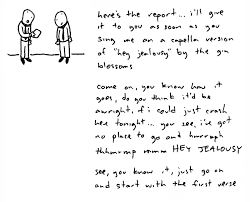 here's the report... i'll give
it to you as soon as you
sing me an a capella version
of "hey jealousy" by the gin
blossoms
come on, you know how it
goes, do you think it'd be
awright, if i could just crash
here tonight... you see, i've got
no place to go and hmrmph
thhmrmp mmm HEY JEALOUSY
see, you know it, just go on
and start with the first verse